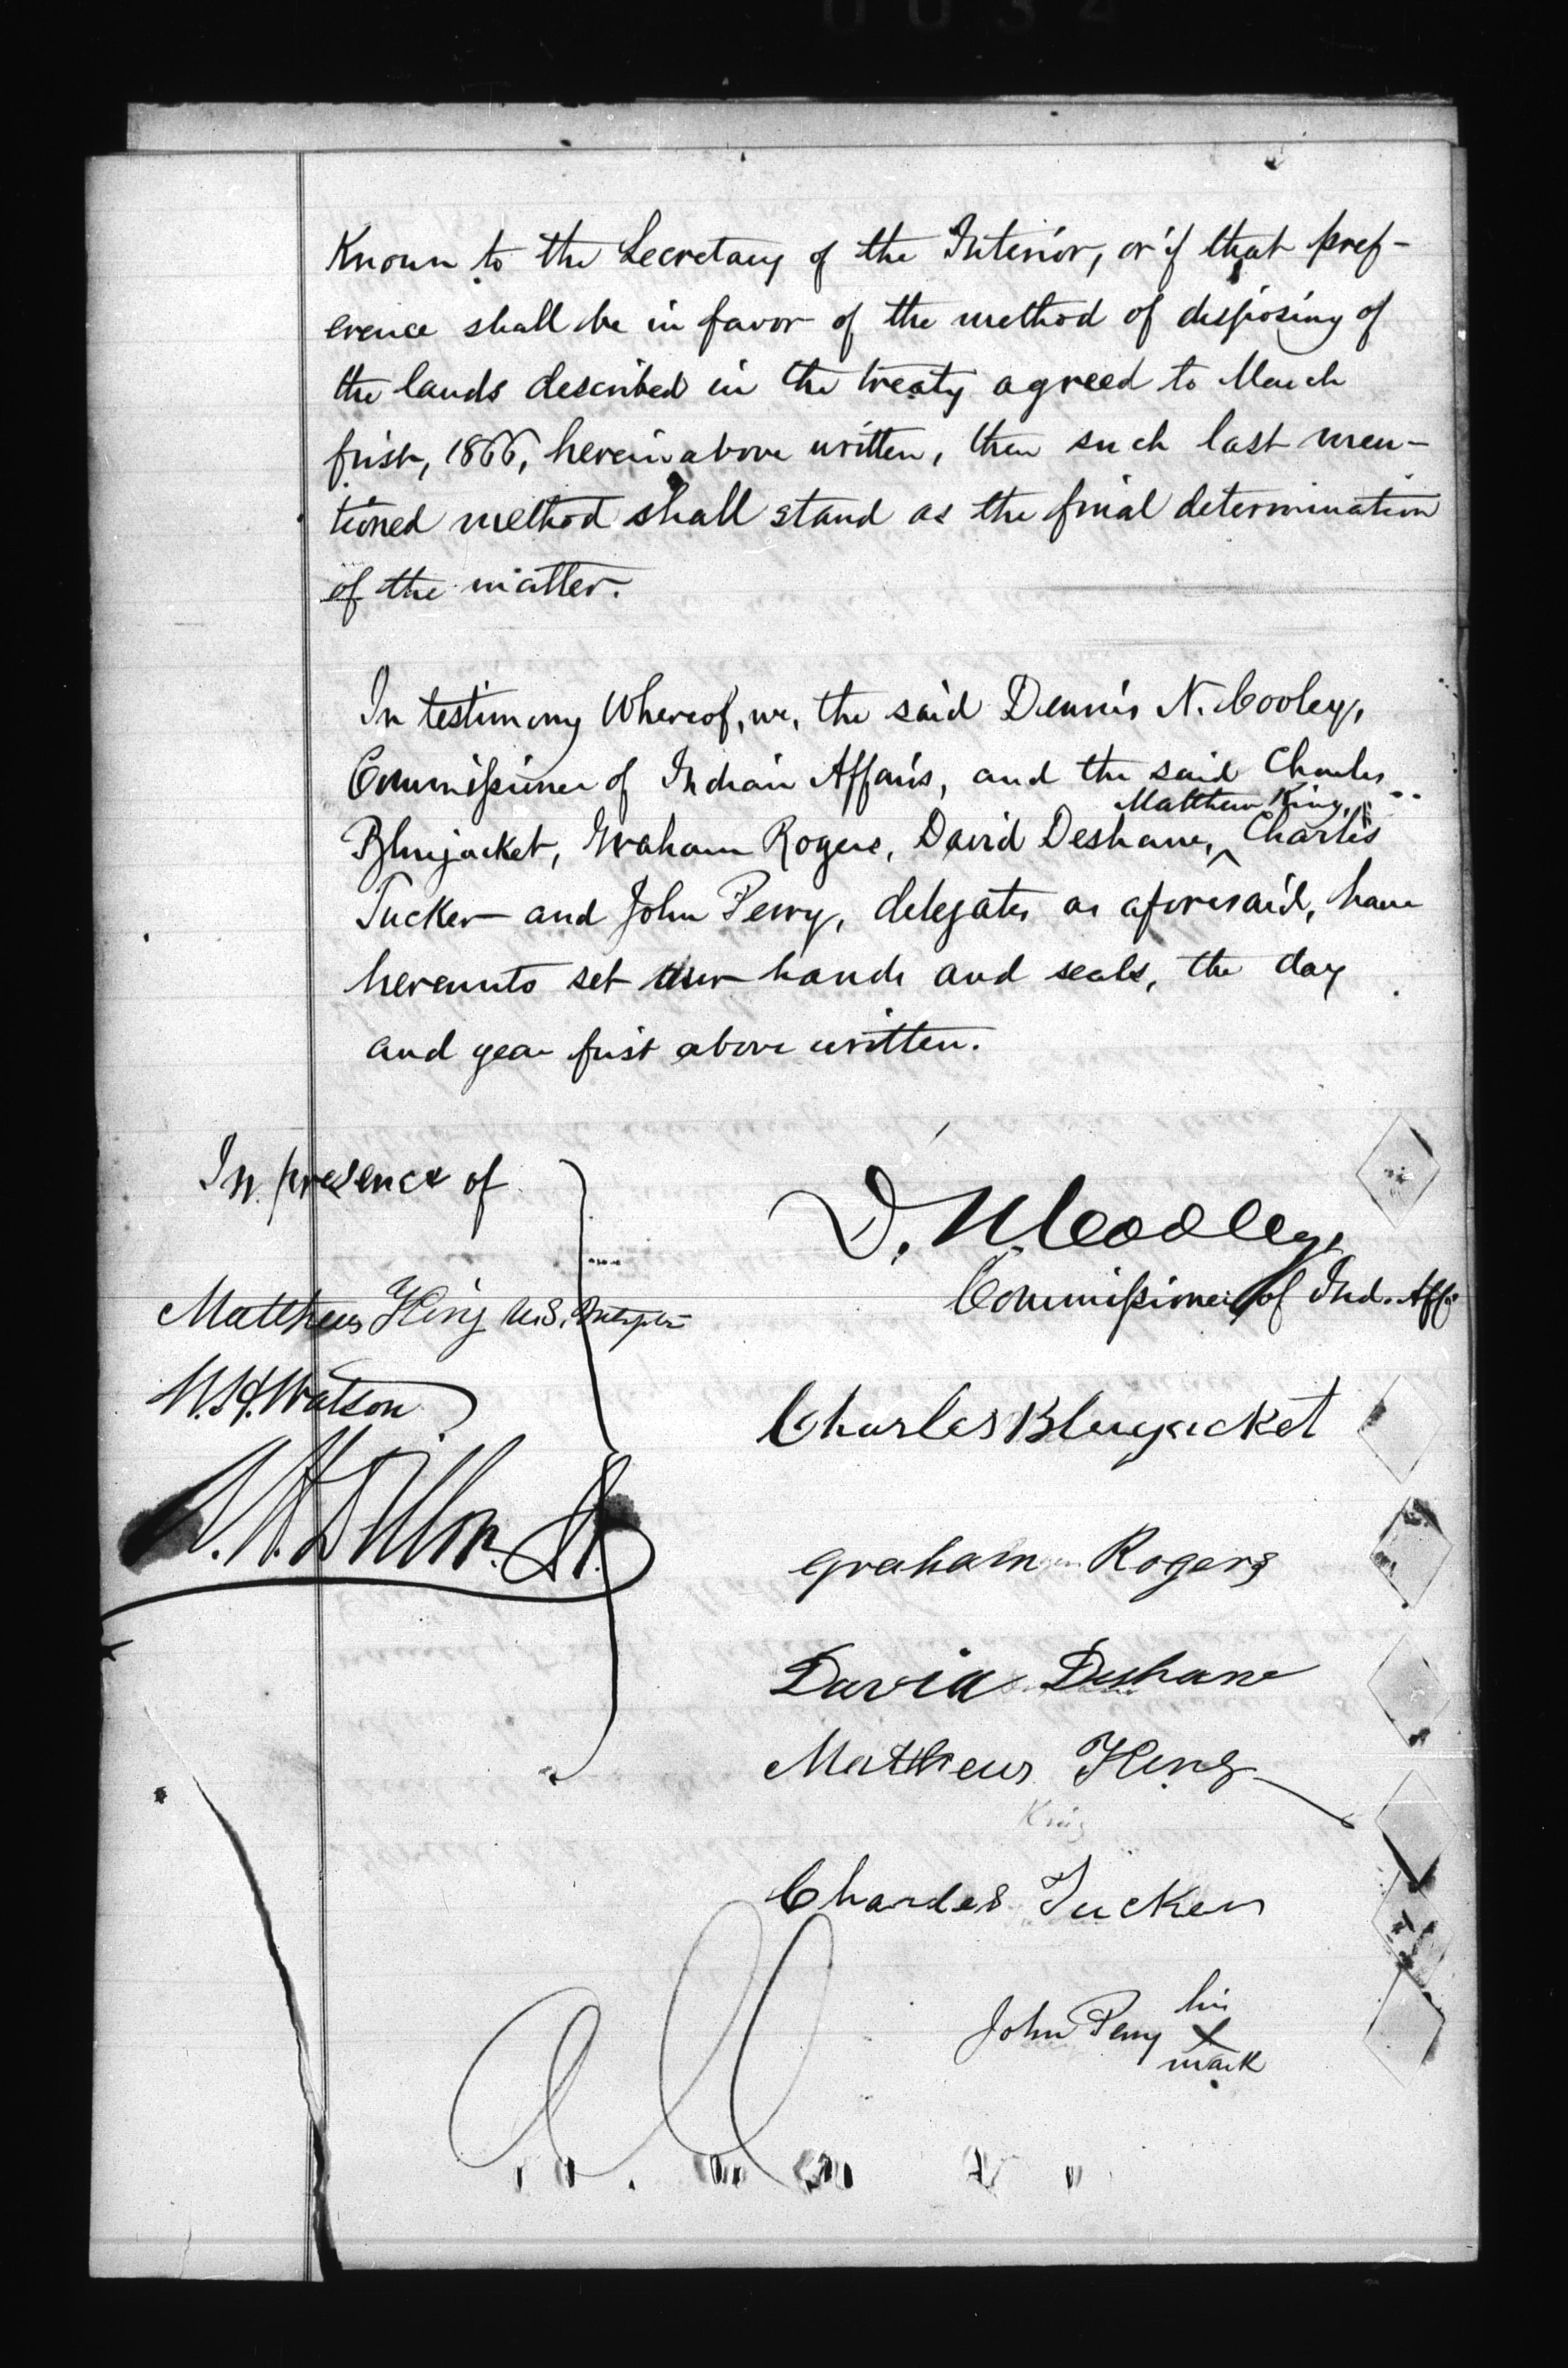 0032
Known to the Secretary of the Interior, or if that pref-
erence shall be in favor of the method of disposing of
the lands described in the treaty agreed to March
first, 1866, hereinabove written, then such last men-
tioned method shall stand as the final determination
of the matter.
In testimony Whereof, we, the said Dennis N. Cooley,
Commissioner of Indian Affairs, and the said Charles
Matthew King,
Bluejacket, Graham Rogers, David Deshane, ^ Charles
Tucker and John Perry, delegates as aforesaid, have
hereunto set our hands and seals, the day
and year first above written.
In presence of
D. N. Cooley,
Commissioner of Ind. Affs
Matthew King U.S. Interpter
W. H. Watson
Charles Bluejacket
Graham Rogers
David Deshane
Mathew King
King
Charles Tucker
his
John Perry X
mark